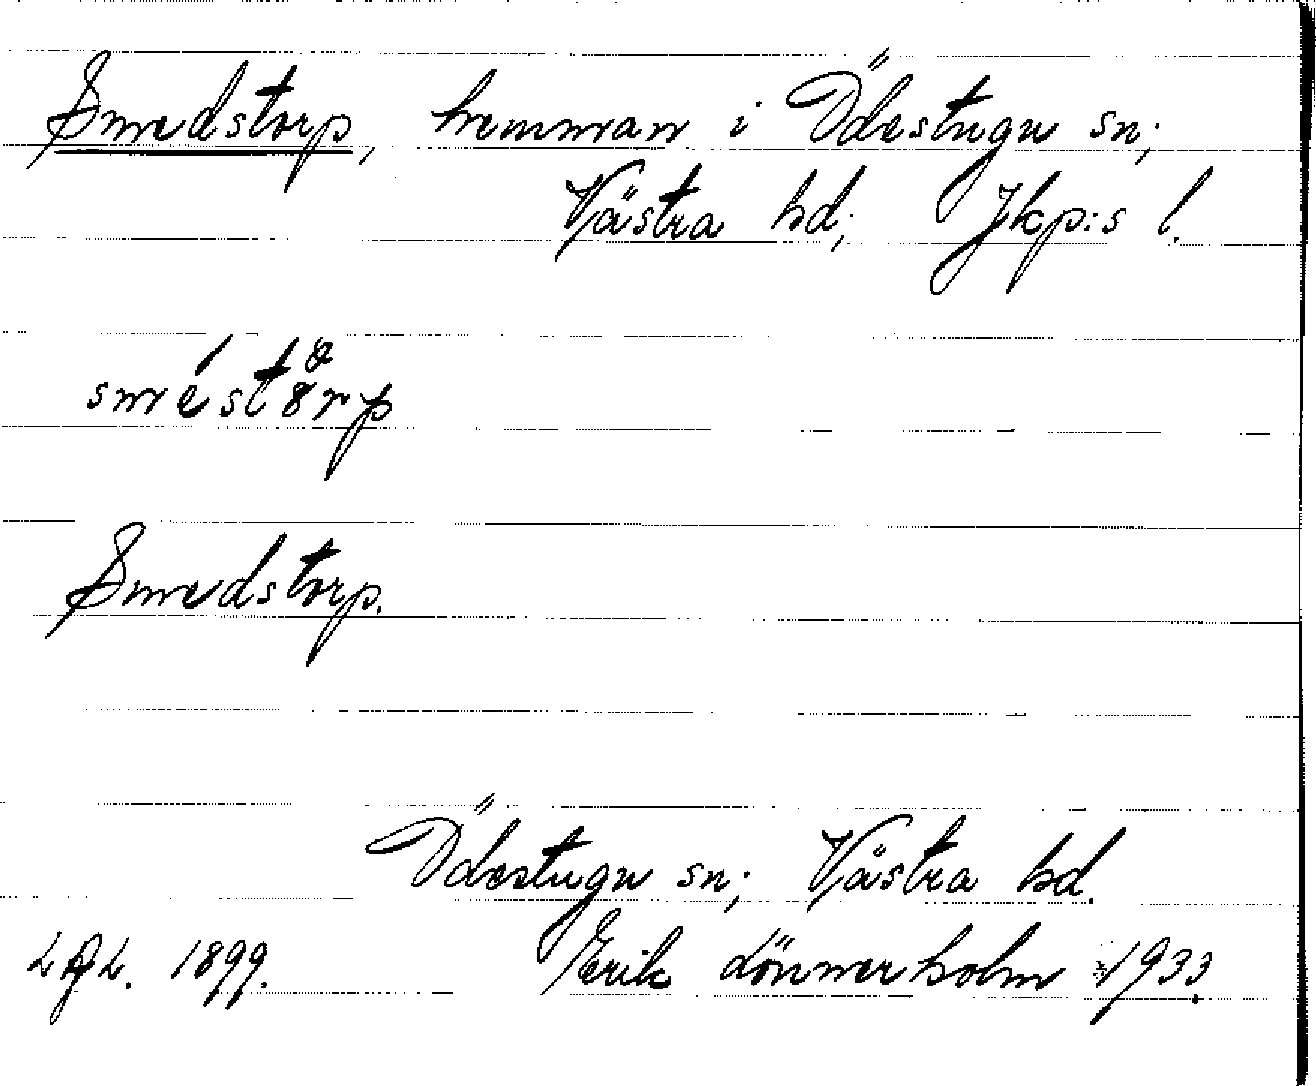 Smedstorp, hemman i Ödestugu sn;
Västra hd; Jkp:s l.
Smedstorp.
Ödestugu sn; Västra hd.
1899. Erik Lönnerholm 1933.